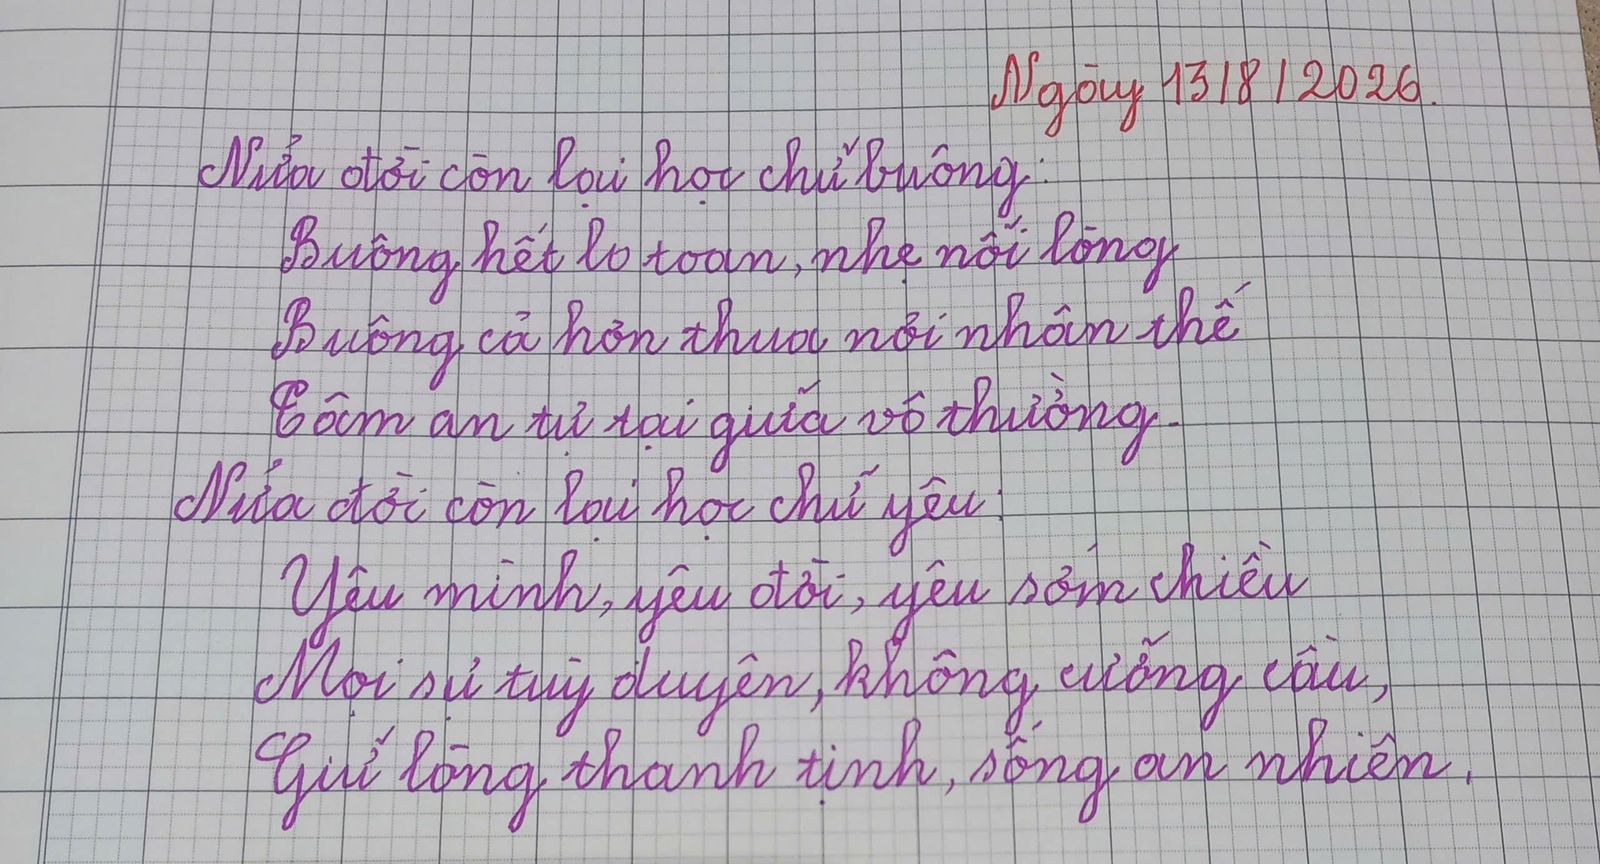 Ngày 13/8/2026.
Nửa đời còn lại học chữ buông:
Buông hết lo toan, nhẹ nỗi lòng
Buông cả hơn thua nơi nhân thế
Tâm an tự tại giữa vô thường.
Nửa đời còn lại học chữ yêu:
Yêu mình, yêu đời, yêu sớm chiều
Mọi sự tuỳ duyên, không cưỡng cầu,
Giữ lòng thanh tịnh, sống an nhiên.